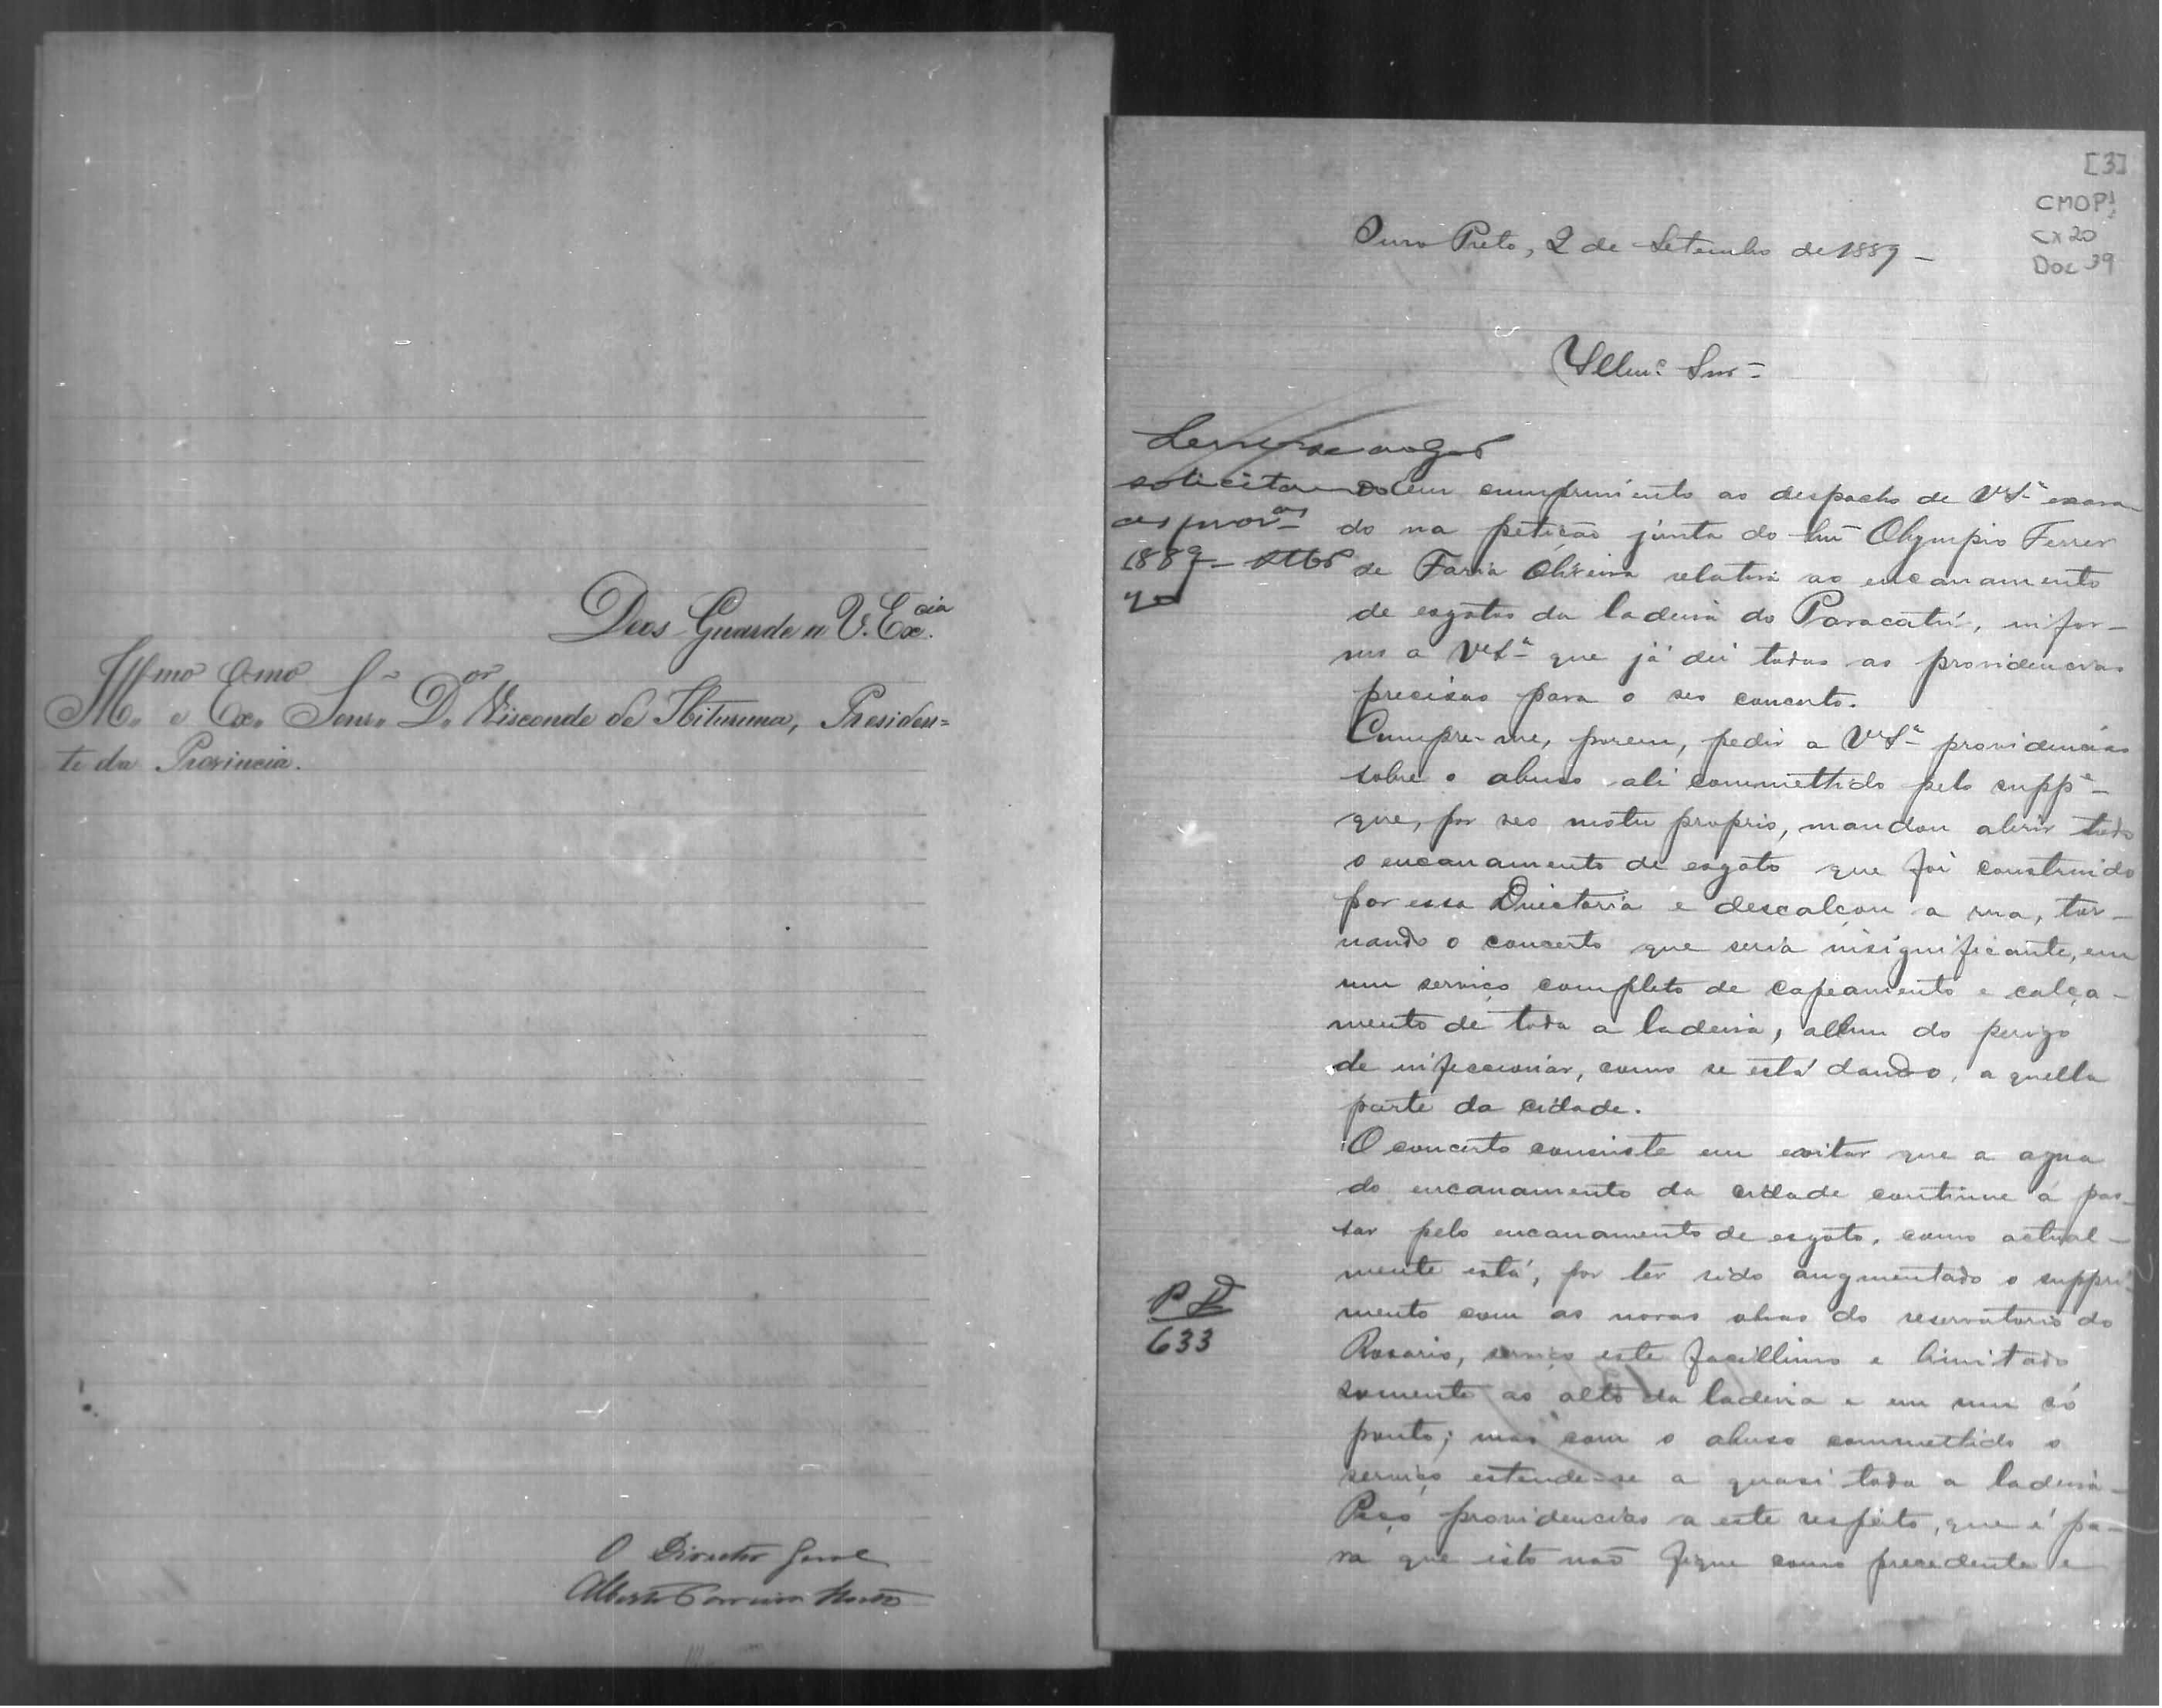 Deos Guarde a V. Ex.cia
Ill.mo e Ex.mo Senr. D.or Visconde de Ibituruna, Presiden=
te da Provincia.
O Director Geral
Alberto
[3]
CMOP
CX 20
Doc 39
Ouro Preto, 2 de Setembro de 1889 -
Illmo. Snr.
solicitando
as prov.as
1889
Em cumprimento ao despacho de V.S.a exara-
do na petição junta do Olympio Ferrer
de Faria Oliveira relativa ao encanamento
de esgotos da ladeira do Paracatú, infor-
mo a V.S.a que já dei todas as providencias
precisas para o seo concerto.
Cumpre-me, porem, pedir a V.S.a providencias
sobre o abuso ali commettido pelo supp.e
que, por seo motu proprio, mandou abrir todo
o encanamento de esgoto que foi construido
por essa Directoria e descalçou a rua, tor-
nando o concerto que seria insignificante, em
um serviço completo de capeamento e calça-
mento de toda a ladeira, allem do perigo
de infeccionar, como se está dando, aquella
parte da cidade.
O concerto consiste em evitar que a agua
do encanamento da cidade continue á pas-
sar pelo encanamento de esgoto, como actual-
mente está, por ter sido augmentado o suppri-
mento com as novas obras do reservatorio do
Rosario, serviço este facillimo e limitado
somente ao alto da ladeira e em um só
ponto; mas com o abuso commettido o
serviço estende-se a quasi toda a ladeira -
Peço providencias a este respeito, que é pa-
ra que isto não fique como precedente e
P D
633